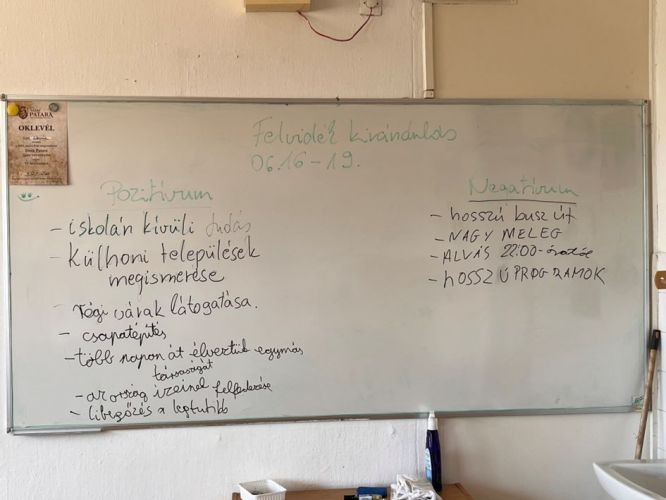 PATARA
OKLEVÉL
Felvidék kirándulás
06.16-19.
Pozitívum
- iskolán kívüli tudás
- Külhoni települések
megismerése
- régi várak látogatása.
- csapatépítés
- több napon át élveztük egymás
társaságát
- az ország ízeinek felfedezése
- libegőzés a legtutibb
Negatívum
- hosszú busz út
- NAGY MELEG
- ALVÁS 22:00-órától
- HOSSZÚ PROGRAMOK